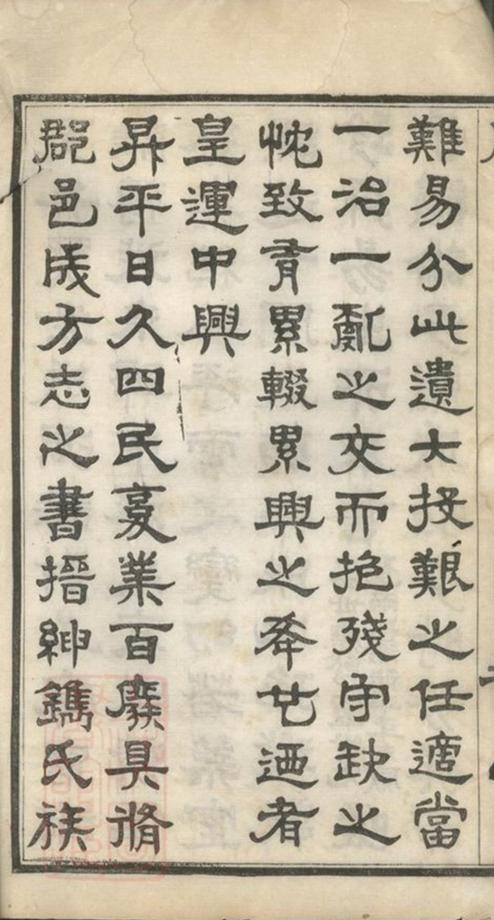 難易分此遺大投艱之任適當
一治一亂之交而抱殘守缺之
忱致有累輟累興之也迺者
皇運中興
昇平日久四民复業百廢具脩
郡邑成方志之書搢紳鐫氏族